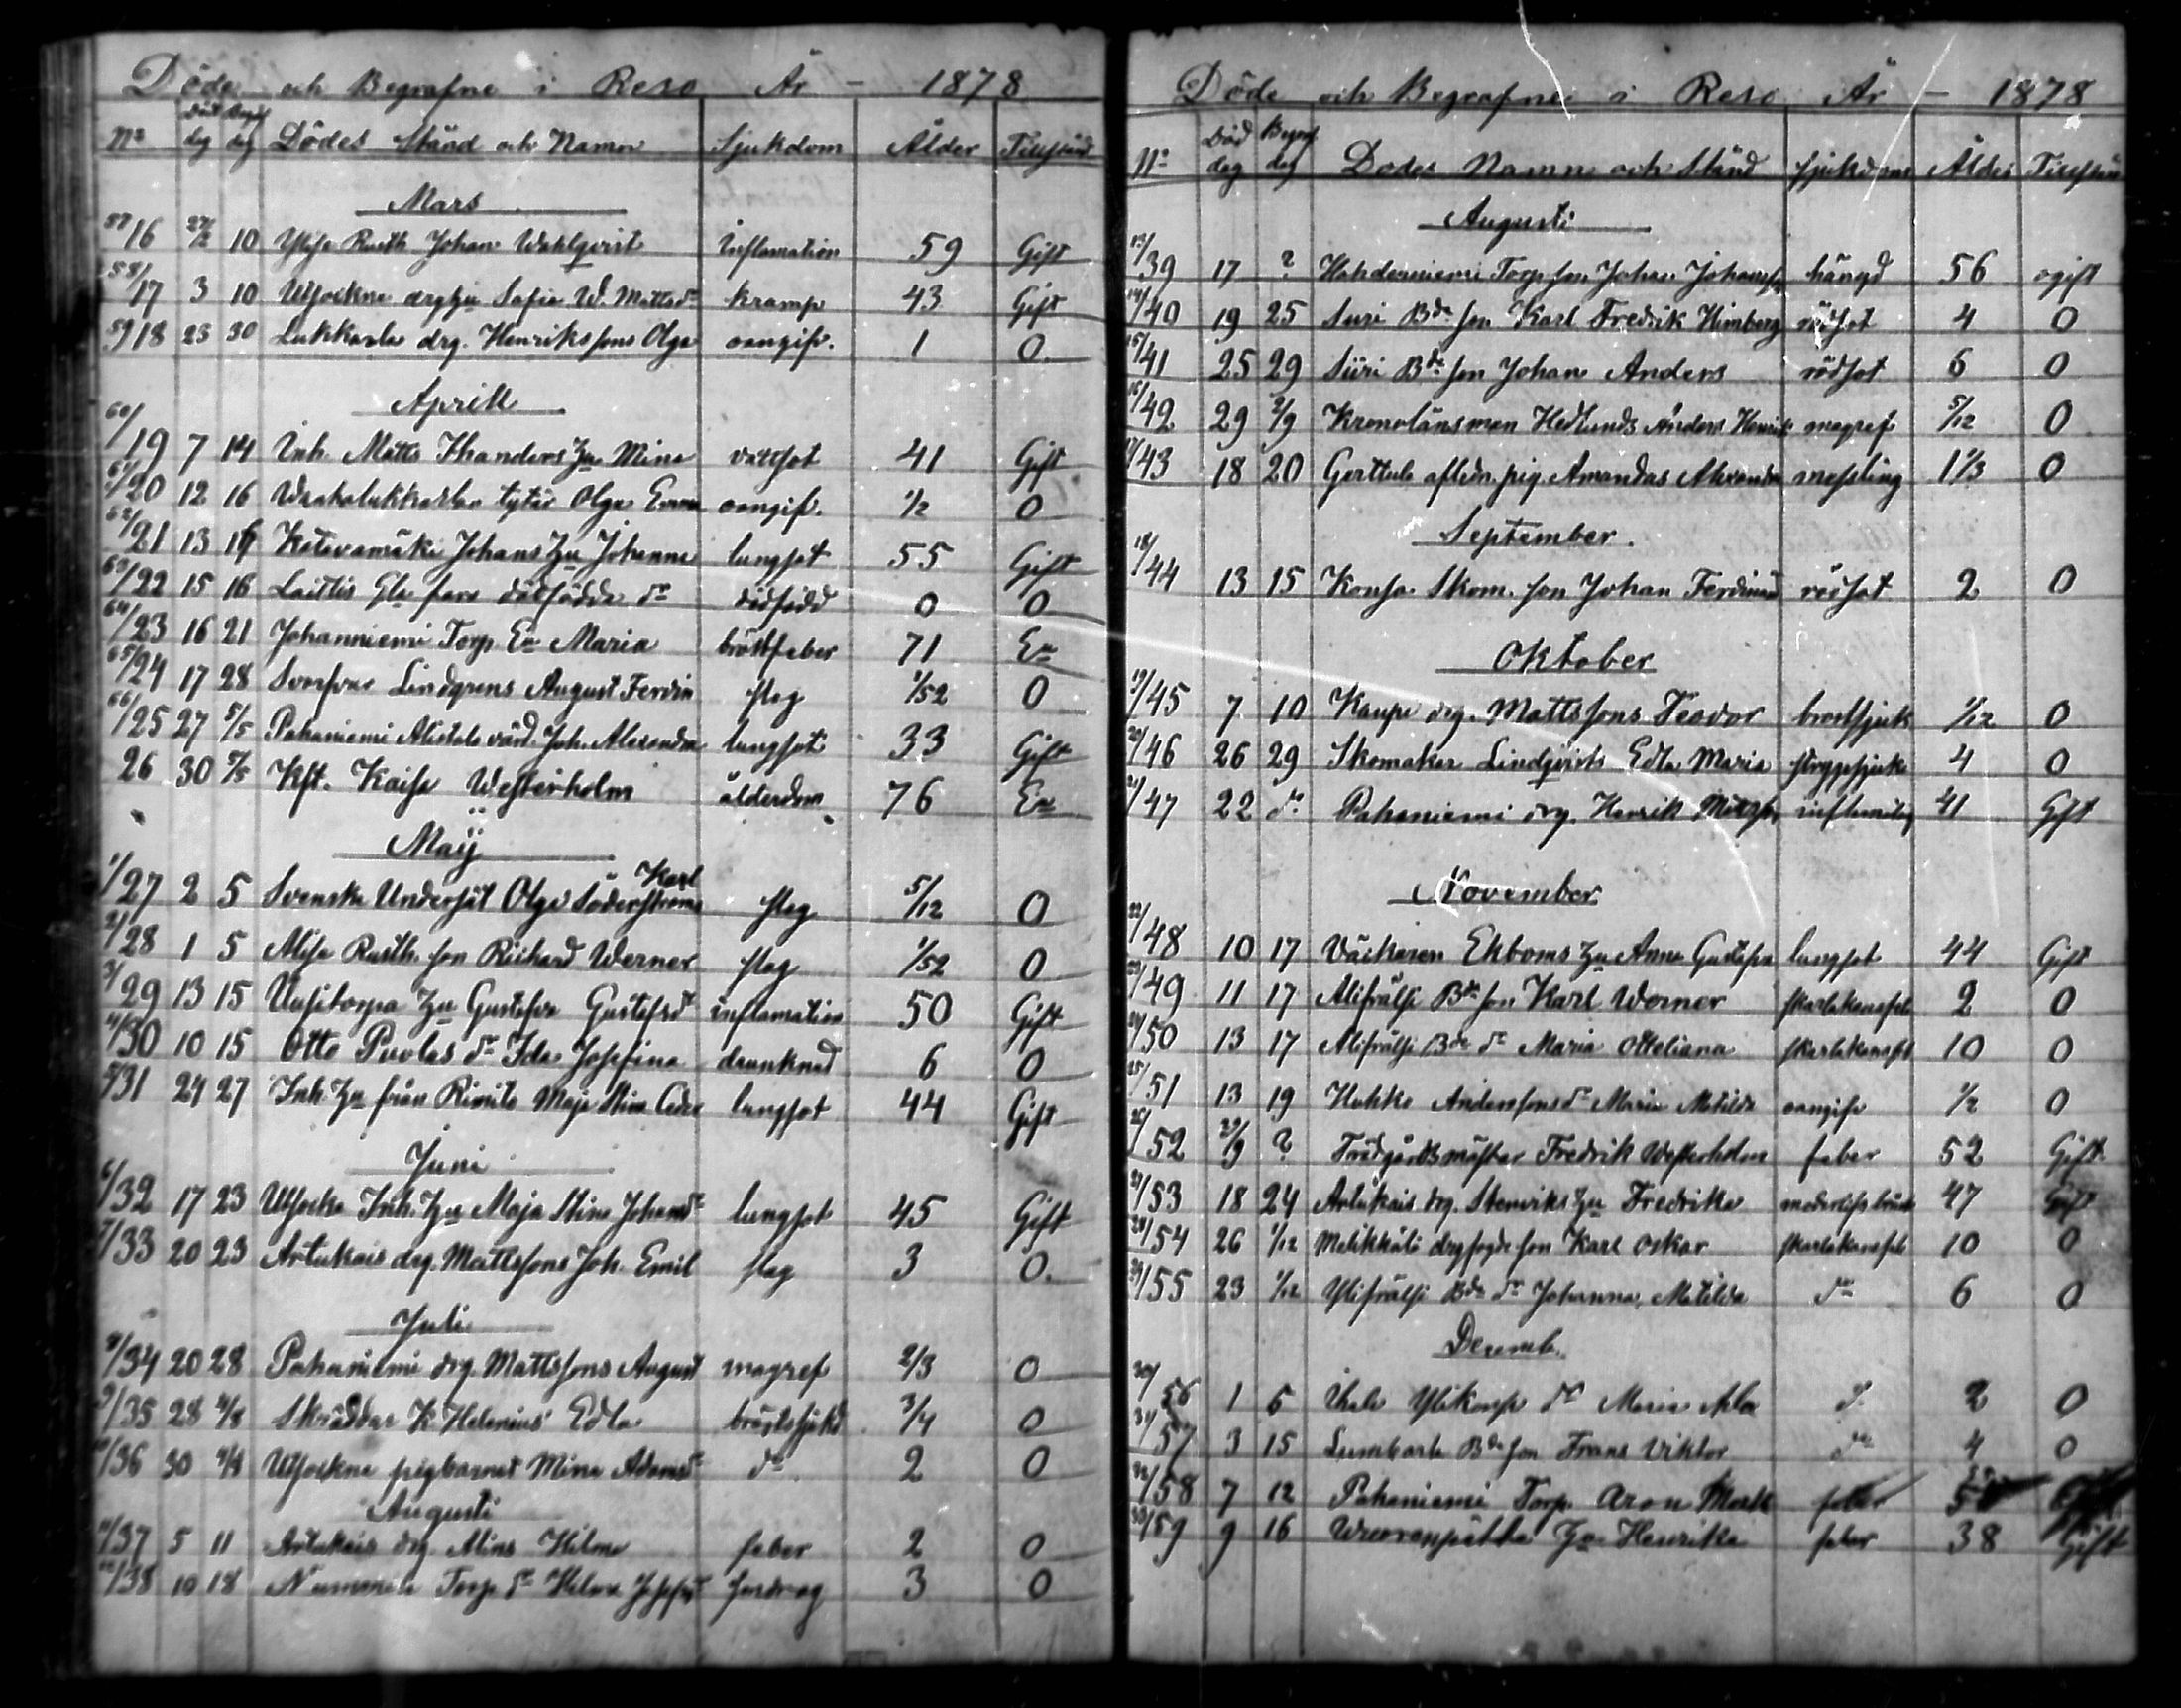 Döde och Begrafne i Reso År - 1878
No Död dag Begr dag Dödes Stånd och Namn Sjukdom Ålder Tillstånd
Mars
57/16 27/2 10 Rusth. Johan Wahlqvist inflamation 59 Gift
58/17 3 10 drghu Sofia W. Mattsdr kramp 43 Gift
59/18 23 30 Lukkarla drg. Henrikssons Olga oangifv. 1 0
Aprill
60/19 7 14 Inh. Matts Thanders hu Mina vattsot 41 Gift
61/20 12 16 tytär Olga Emma oangif. 1/2 0
62/21 13 16 Katavamäki Johans hu Johanna lungsot 55 Gift
63/22 15 16 Laittis dödfödde dr dödfödd 0 0
64/23 16 21 Johanniemi Torp. Ea Maria bröstfeber 71 Ea
65/24 17 28 Lindgrens August Ferdin slag 1/52 0
66/25 27 5/5 Pahaniemi Alistalo värd. Joh. Alexander lungsot 33 Gift
26 30 5/5 Kft. Kaisa Westerholm ålderdom 76 Ea
Maÿ
1/27 2 5 Svenska Undersåt Olga Söderströms Karl slag 5/12 0
2/28 1 5 Rusth. son Richard Werner slag 1/52 0
3/29 13 15 Uusitorpa hu Gustafva Gustafsdr inflamation 50 Gift
4/30 10 15 Otto Puolas dr Ida Josefina drunknad 6 0
5/31 24 27 Inh. hu från Rimito Maja Stina lungsot 44 Gift
Juni
6/32 17 23 Inh. hu Maja Stina Johansdr lungsot 45 Gift
7/33 20 23 Artukais drg. Mattssons Joh. Emil slag 3 0.
Juli
8/34 20 28 Pahaniemi drg. Mattssons August magref 2/3 0
9/35 28 4/8 Skräddar K. Helenius' Edla bröstsjukd 3/4 0
10/36 30 4/8 pigbarnet Mina Adamsdr dr 2 0
Augusti
11/37 5 11 Artukais drg. Alins Hilma feber 2 0
12/38 10 18 Nummila Torp. dr Hilma 3 0
Döde och Begrafne i Reso År - 1878
No Död dag Begraf dag Dödes Namn och Stånd sjukdom Ålder Tillstån
Augusti
13/39 17 ? Torp. son Johan Johansson hängd 56 ogift
14/40 19 25 Suri Bde son Karl Fredrik Himberg rödsot 4 0
15/41 25 29 Suri Bde son Johan Anders rödsot 6 0
16/42 29 2/9 Kronolänsman Hedlunds Anders Henrik magref 5/12 0
17/43 18 20 Gerttula afledn. pig. Amandas Alexandra messling 1 1/3 0
September.
18/44 13 15 Skom. son Johan Ferdinand rödsot 2 0
Oktober
19/45 7 10 Kaupi drg. Mattssons Feodor bröstsjuk 1/12 0
20/46 26 29 Skomakar Lindqvists Edla Maria 4 0
21/47 22 dr Pahaniemi drg. Henrik 41 Gift
November
22/48 10 17 Ekboms hu Anna Gustafva lungsot 44 Gift
23/49 11 17 Alifrälsi Bde son Karl Werner skarlakansfeb 2 0
24/50 13 17 Alifrälsi Bde dr Maria Otteliana skarlakansf 10 0
25/51 13 19 Anderssons dr Maria Matilda oangifv 1/2 0
26/52 ? Trädgårdsmästar Fredrik Westerholm feber 52 Gift
27/53 18 24 Artukais drg. Stenviks hu Fredrika 47 Gift
28/54 26 1/12 drgfogde son Karl Oskar skarlakansfeb 10 0
29/55 23 1/12 Ylifrälsi Bde dr Johanna Matilda dr 6 0
Decemb.
30/56 1 5 Ihala dr Maria dr 2 0
31/57 3 15 Lumbarla Bde son Frans Viktor dr 4 0
32/58 7 12 Pahaniemi Torp. Aron feber
33/59 9 16 hu Henrika feber 38 Gift